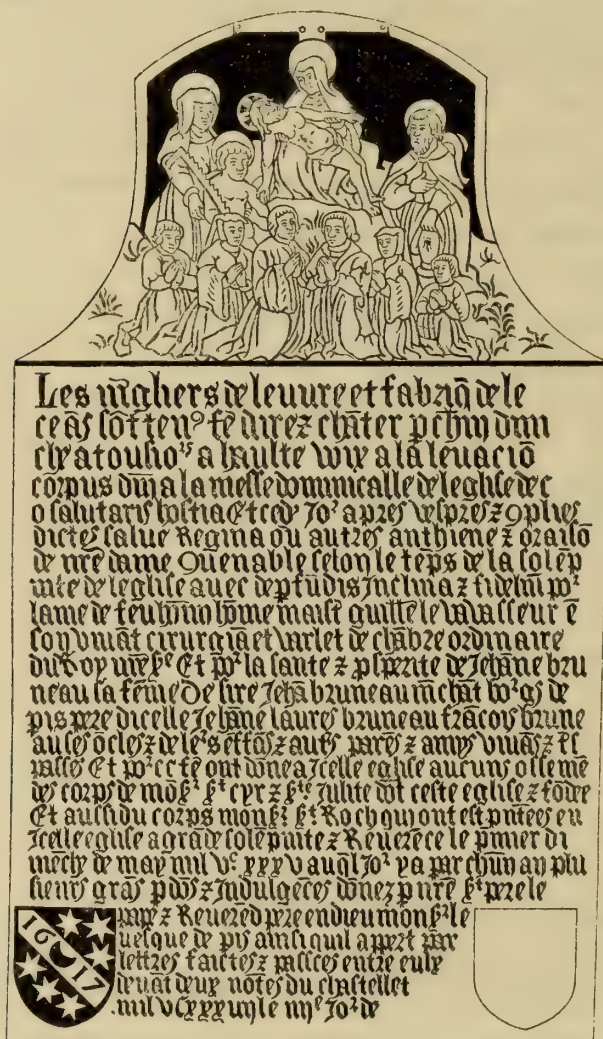 Les m̄gliers de leuure et fabriq̄ de le
ceās sōt tenꝰ fē dire z chāter p chūn dim
che a tousioʳˢ a haulte voix a la leuaciō
corpus dm̄ a la messe dominicalle de leglise de c
o salutaris hostia Et ce dᵗ Joʳ apres vespres z ꝯplies
dictes salue Regina ou autres anthiene z oraisō
de nr̄e dame ꝯuenable selon le tēps de la solēp
nite de leglise auec de pfūdis Inclina z fideliū poʳ
lame de feu hōm hōme maisᵗ guillē le vavasseur ē
son viuāt cirurgiā et varlet de chābre ordinaire
du Roy nr̄e sʳᵉ Et poʳ la sante z pſperite de Jehāne bru
neau sa fēme De sire Jehā bruneau m̄chāt boʳgs de
pis pere dicelle Jehāne laures bruneau frācois brune
au ses ōcles z de leʳs effās z aut̄s parēs z amys viuās z t̄s
passes Et poʳ ce fē ont dōne a Jcelle eglise aucuns osseme
des corps de mōsʳ sᵗ cyr z sᵗᵉ Julite dōt ceste eglise ē fōdee
Et aussi du corps monsʳ sᵗ Roch qui ont est pn̄tees en
Jcelle eglise a grāde solēpnite z Reuerēce le pmier di
mēche de may mil vᶜ xxxv auql̄ Joʳ y a par chūn an plu
sieurs grās pdōs z Indulgēces dōnez p nr̄e sᵗ pere le
pape z Reuerēd pere en dieu monsʳ le
uesque de pis ainsi quil apert par
lettres faictes z passees entre eulx
deuāt deux notēs du chastellet
mil vcxxxvii le iiiᵉ Joʳ de
16 17